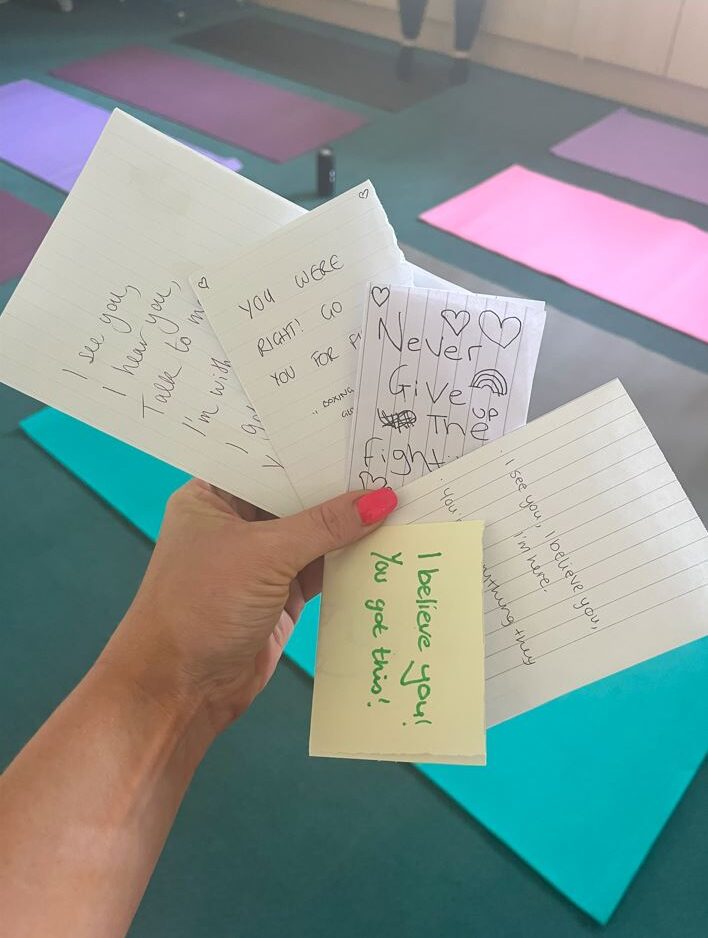 I see you,
I hear you,
Talk to m
I'm with
I
YOU WERE
RIGHT! GO
YOU FOR
"BOXING
Never
Give
up
The
Fight
I see you, I believe you,
I'm here.
they
I believe you!
You got this!